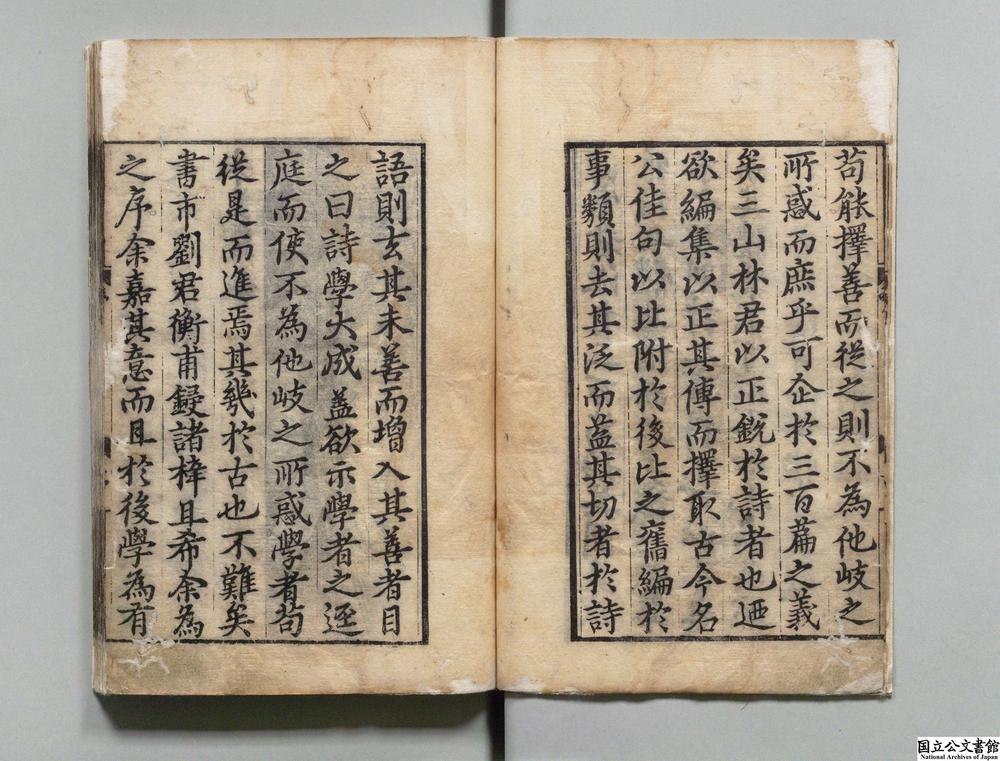 苟能擇善而從之則不為他岐之
所惑而庶乎可企於三百篇之義
矣三山林君以正銳於詩者也廼
欲編集以正其傳而擇取古今名
公佳句以比附於後比之舊編於
事類則去其泛而益其切者於詩
語則玄其未善而增入其善者目
之曰詩學大成蓋欲示學者之逕
庭而使不為他岐之所惑學者苟
從是而進焉其幾於古也不難矣
書市劉君衡甫鋟諸梓且希余為
之序余嘉其意而且於後學為有
国立公文書館
National Archives of Japan